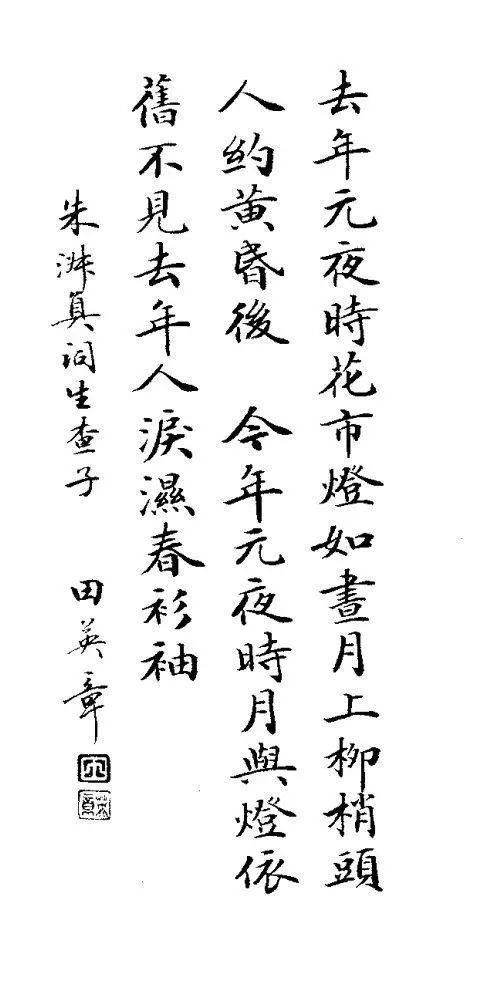 去年元夜時花市燈如晝月上柳梢頭
人約黃昏後 今年元夜時月與燈依
舊不見去年人淚濕春衫袖
朱淑真詞生查子 田英章